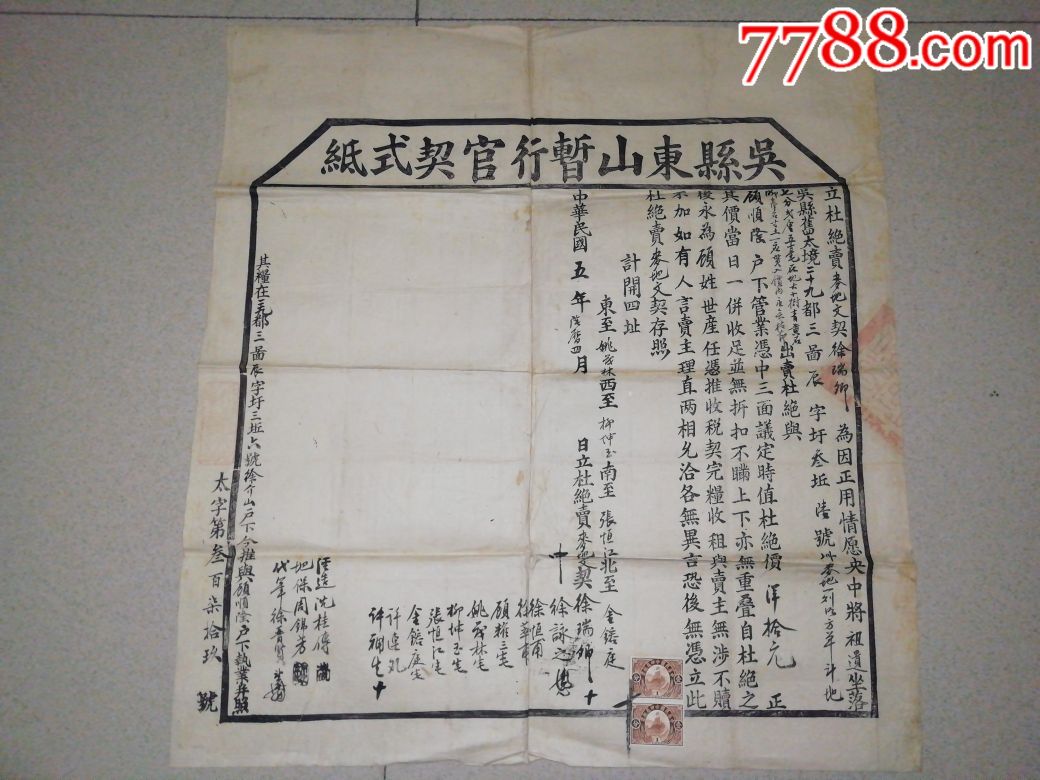 7788.com
吳縣東山暫行官契式紙
立杜絕賣麥地文契徐瑞卿為因正用情愿央中將祖遺坐落
吳縣舊太境二十九都三啚辰字圩叁坵陸號
出賣杜絕與
顧順陰戶下管業憑中三面議定時值杜絕價洋拾元正
其價當日一併收足並無拆扣不瞞上下亦無重叠自杜絕之
後永為顧姓世産任憑推收税契完糧收租與賣主無涉不贖
不加如有人言賣主理直两相允洽各無異言恐後無憑立此
杜絕賣麥地文契存照
計開四址
東至姚茂林西至柳坤玉南至張恒江北至金錧庭
中華民國五年陰厯四月日立杜絕賣麥地契徐瑞卿十
中
徐詠之
徐恒甫
徐華甫
顧雜三
姚茂林
柳坤玉
張恒江
金錧庭
許連九
許福生十
沈桂傳
地保周錦芳
代筆徐晋賢
其糧在三啚辰字圩三坵六號徐介山戶下今推與顧順陰戶下執業存照
太字第叁百柒拾玖號